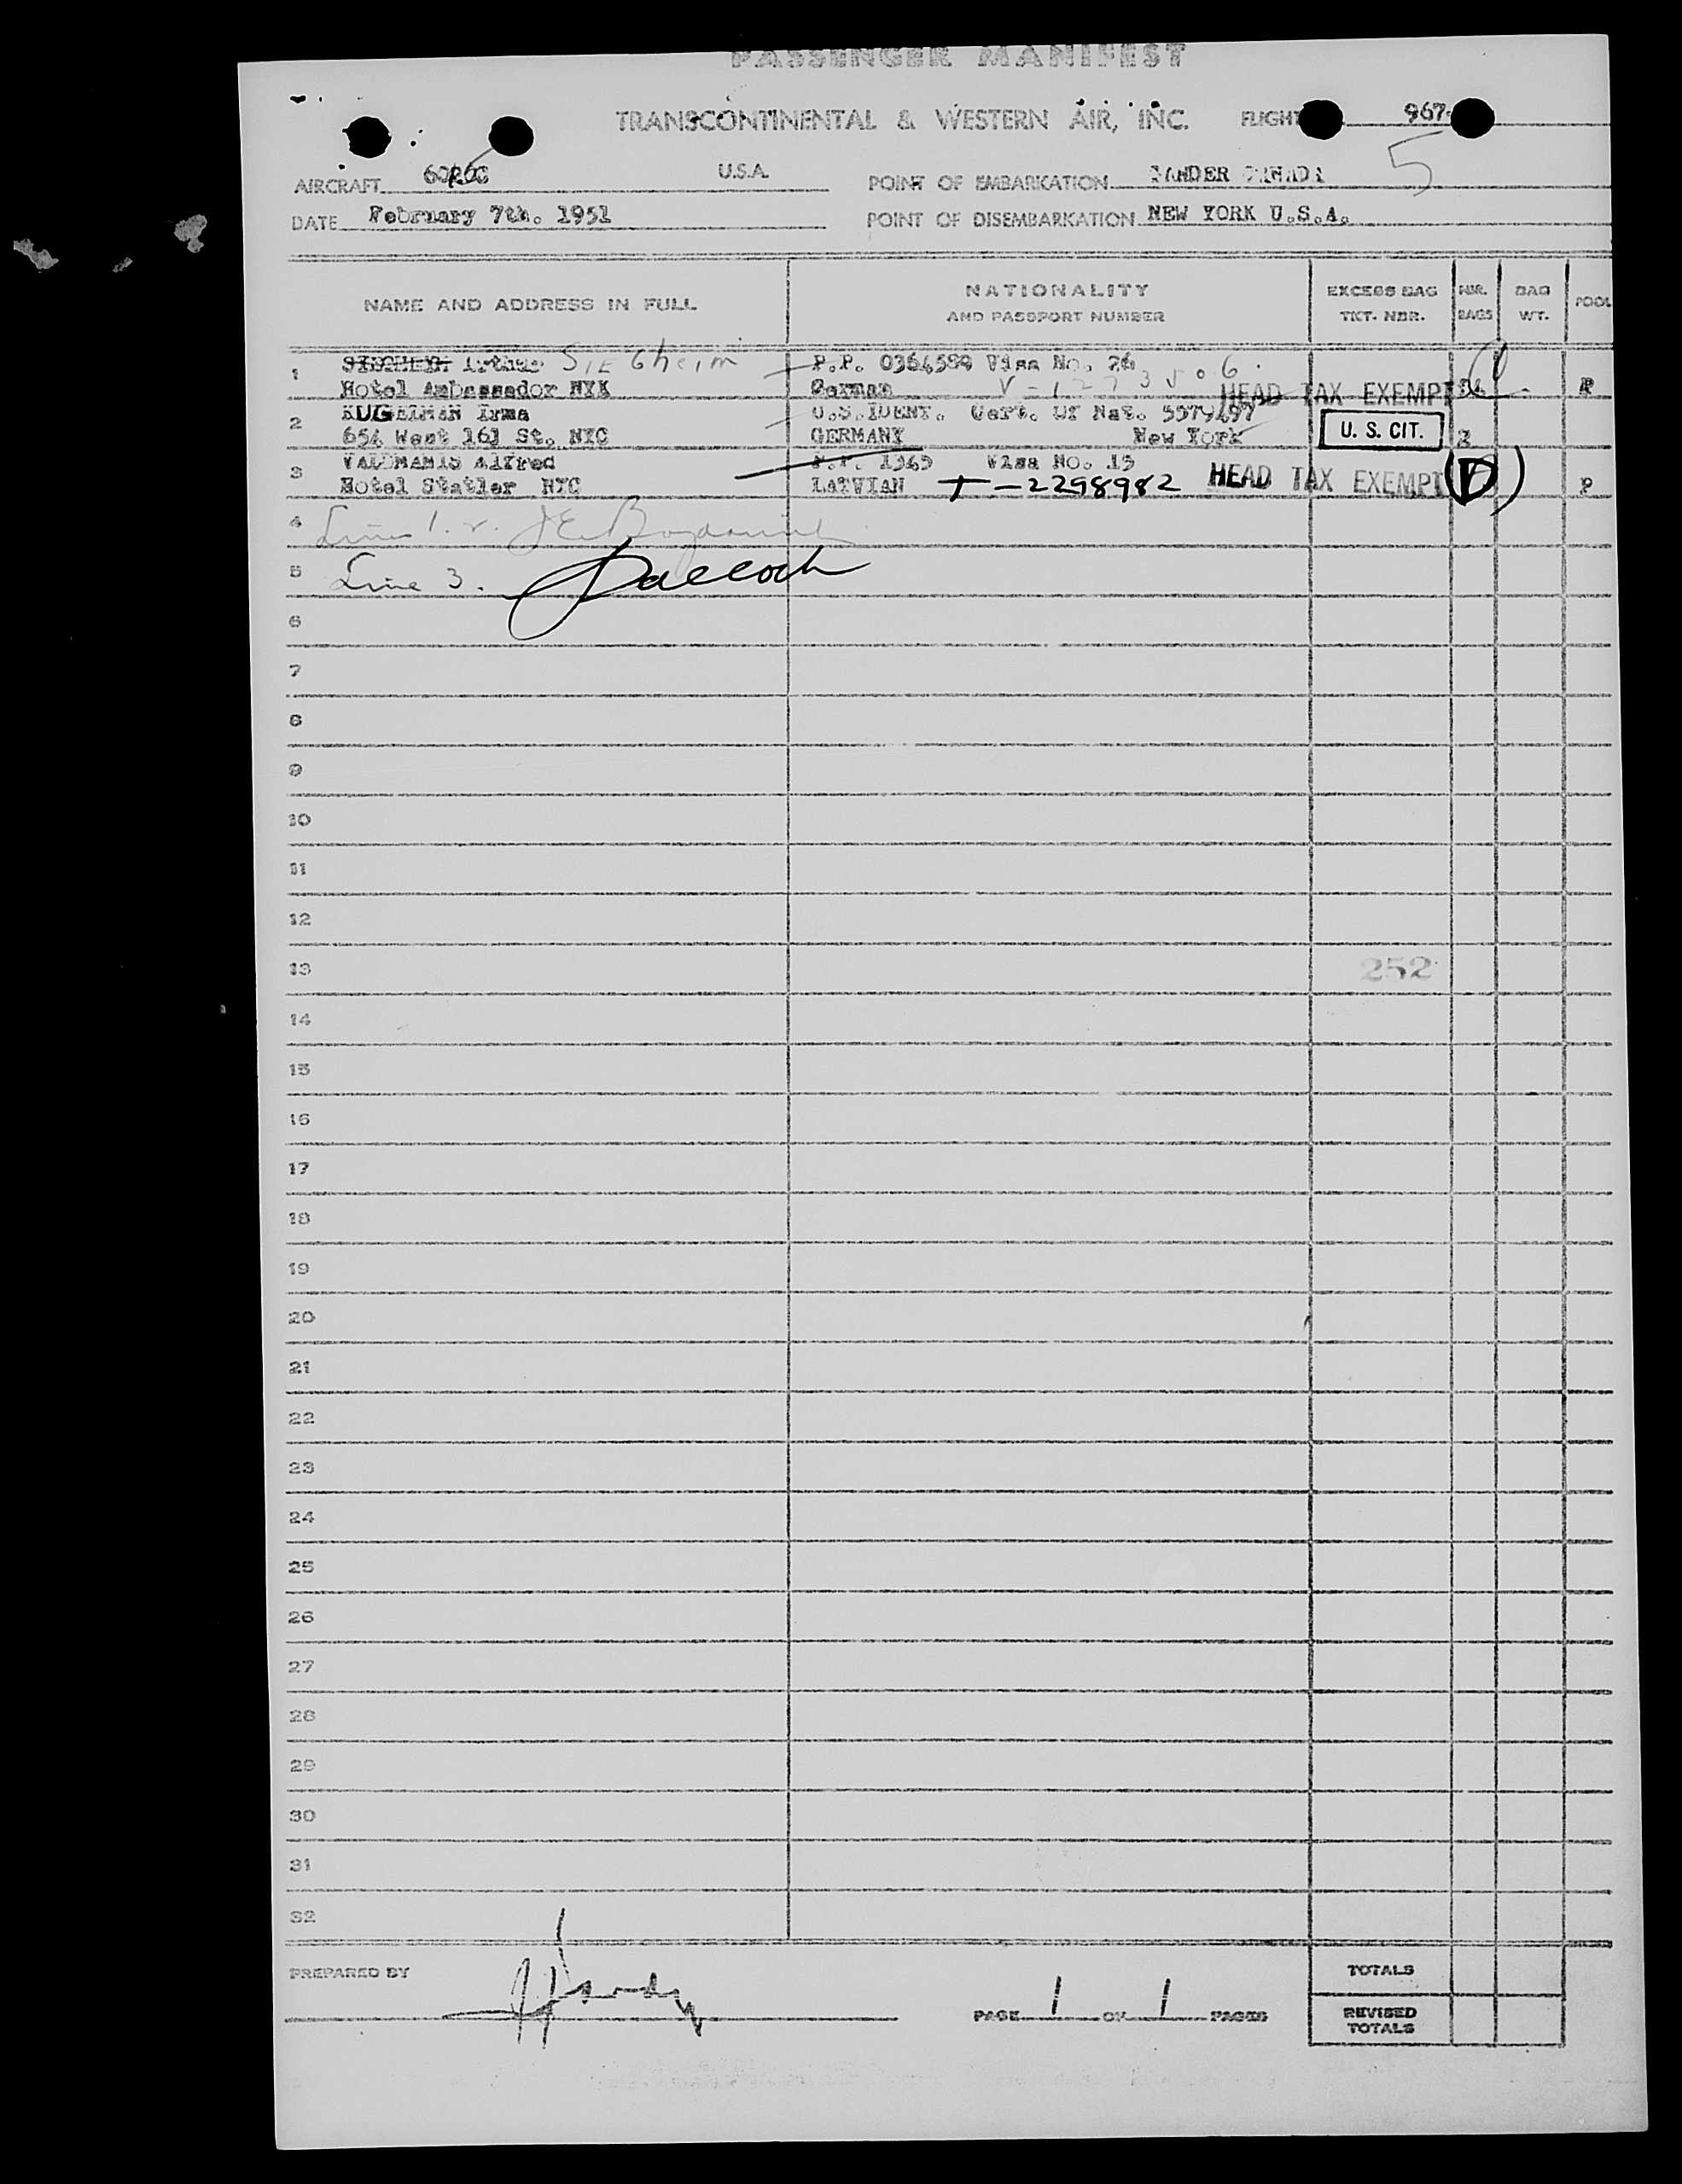 PASSENGER MANIFEST
TRANSCONTINENTAL & WESTERN AIR, INC. FLIGHT 967
5
AIRCRAFT U.S.A. POINT OF EMBARKATION GANDER CANADA
DATE February 7th. 1951 POINT OF DISEMBARKATION NEW YORK U.S.A.
NAME AND ADDRESS IN FULL NATIONALITY AND PASSPORT NUMBER EXCESS BAG TKT. NBR. NBR. BAGS BAG WT. POOL
1 Arthur SIEGheim P.P. 0364584 Visa No. 26
Hotel Ambassador NYK German V-1273506 HEAD TAX EXEMPT P
2 KUGELMAN Irma U.S.IDENT. Cert. Of Nat. 5579497
654 West 161 St. NYC GERMANY New York U. S. CIT. 2
3 VALDMANIS Alfred P.P. 1365 Visa No. 15
Hotel Statler NYC LATVIAN T-2298982 HEAD TAX EXEMPT P
4 Line 1.
5 Line 3.
6
7
8
9
10
11
12
13 252
14
15
16
17
18
19
20
21
22
23
24
25
26
27
28
29
30
31
32
PREPARED BY Hardy PAGE 1 OF 1 PAGES TOTALS
REVISED TOTALS